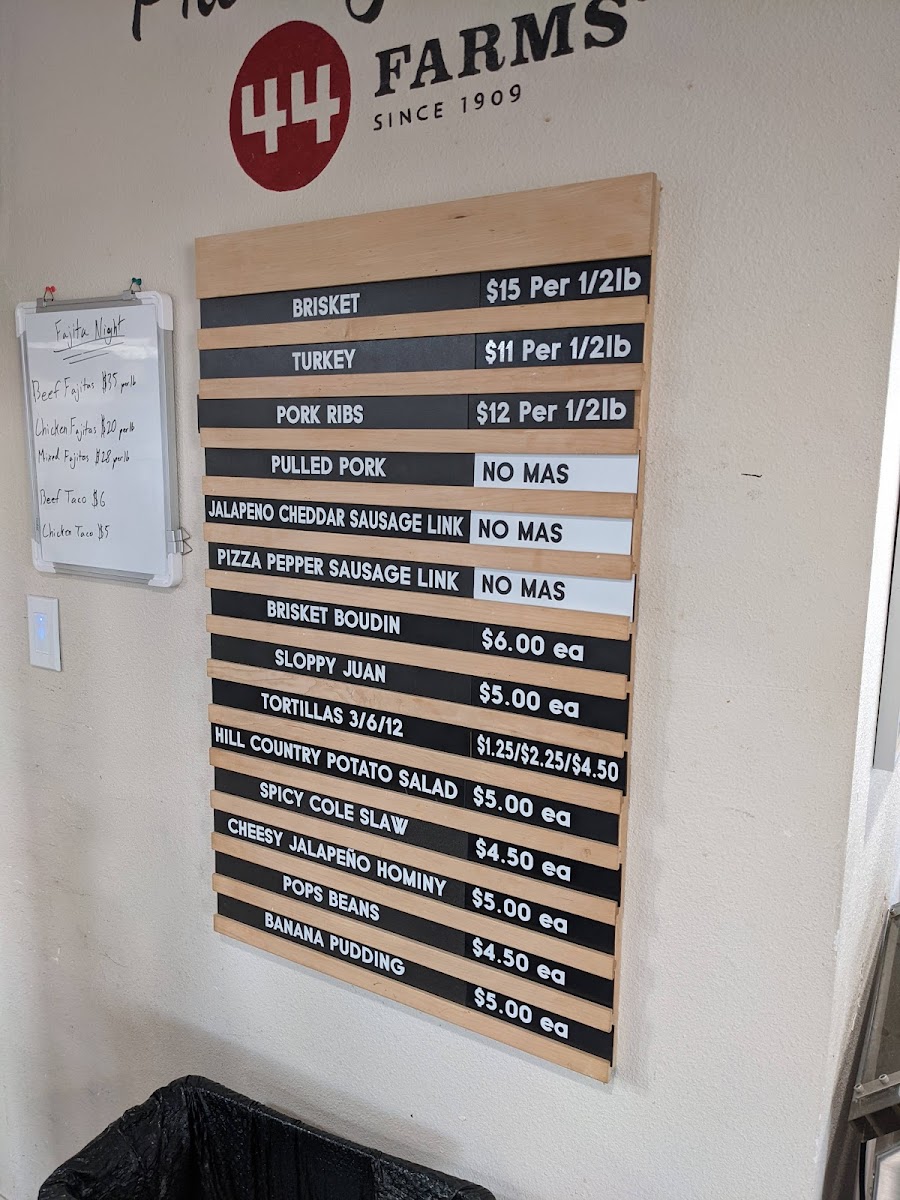 44 FARMS
SINCE 1909
Fajita Night
Beef Fajitas $35 per lb
Chicken Fajitas $20 per lb
Mixed Fajitas $28 per lb
Beef Taco $6
Chicken Taco $5
BRISKET $15 Per 1/2lb
TURKEY $11 Per 1/2lb
PORK RIBS $12 Per 1/2lb
PULLED PORK NO MAS
JALAPENO CHEDDAR SAUSAGE LINK NO MAS
PIZZA PEPPER SAUSAGE LINK NO MAS
BRISKET BOUDIN $6.00 ea
SLOPPY JUAN $5.00 ea
TORTILLAS 3/6/12 $1.25/$2.25/$4.50
HILL COUNTRY POTATO SALAD $5.00 ea
SPICY COLE SLAW $4.50 ea
CHEESY JALAPEÑO HOMINY $5.00 ea
POPS BEANS $4.50 ea
BANANA PUDDING $5.00 ea